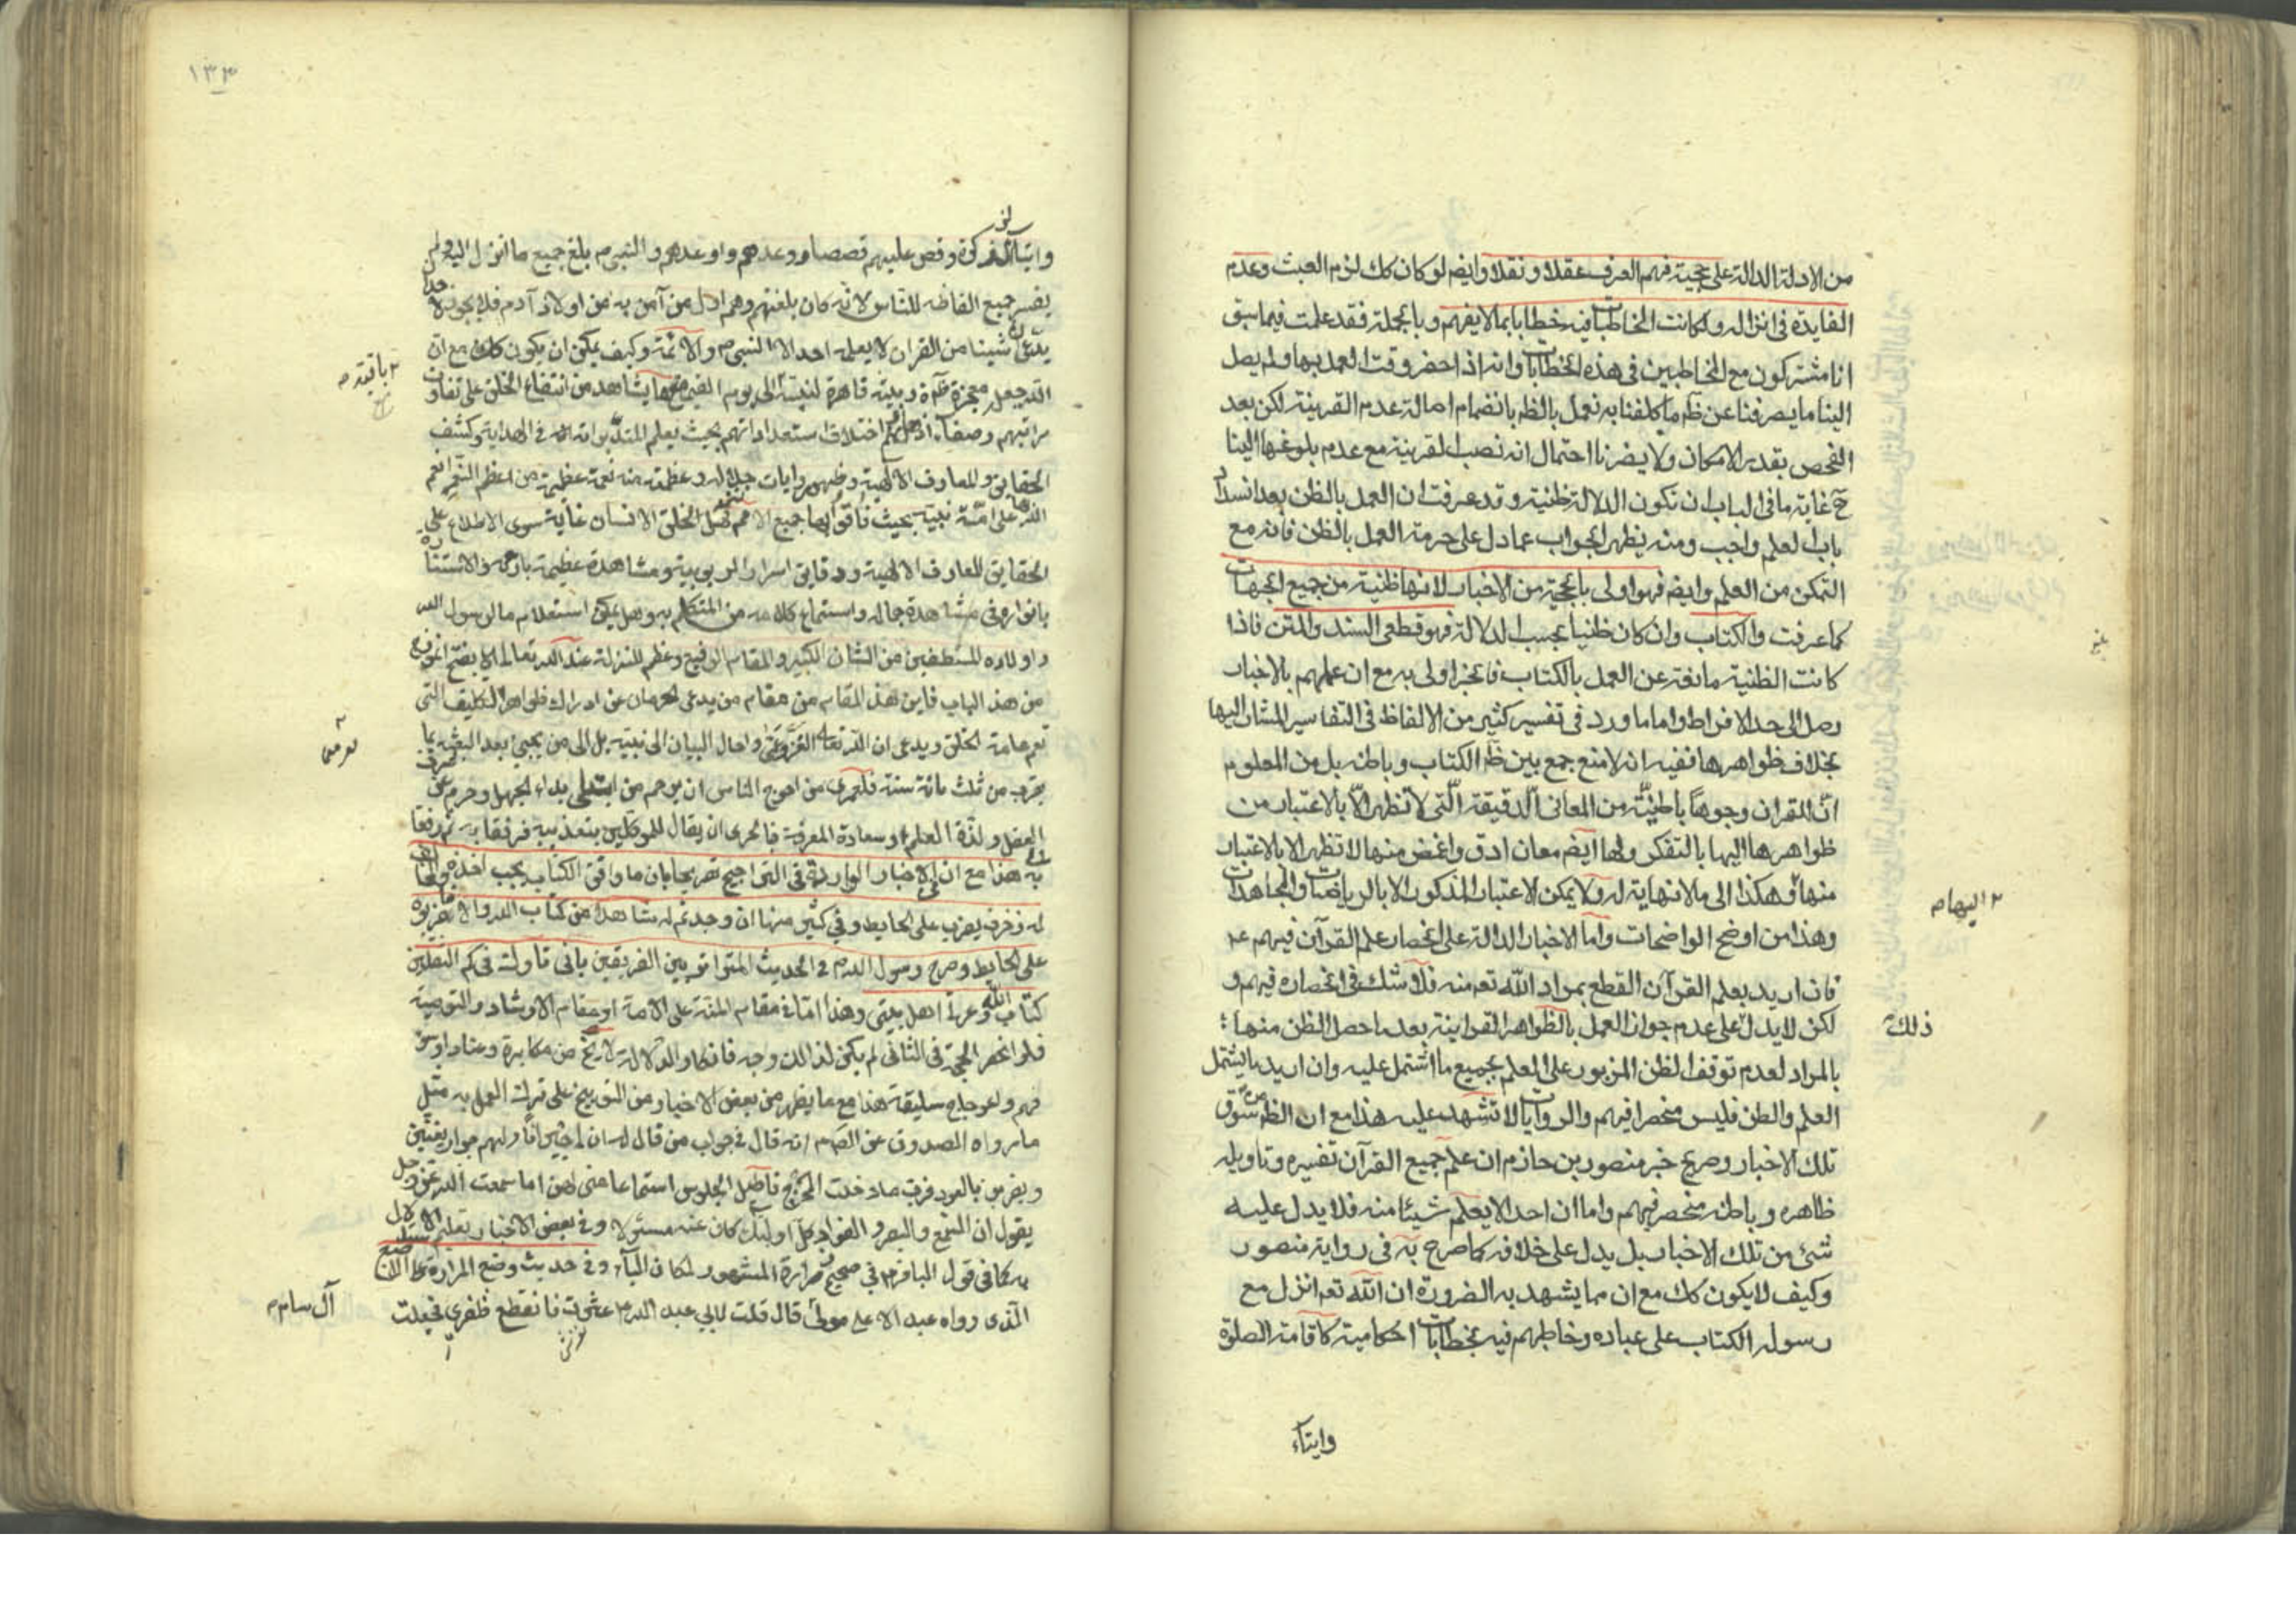 من الادلة الدالة على حجية فهم العرف عقلا ونقلا وايضم لو كان كك لزم العبث وعدم
الفايدة فى انزاله ولكانت المخاطبات فيه خطابا بما لا يفهم وبالجملة فقد علمت فيما سبق
انا مشتركون مع المخاطبين فى هذه الخطابات وانه اذا حضر وقت العمل بها ولم يصل
الينا ما يصرفنا عن ظم ما كلفنا به نعمل بالظم بانضمام اصالة عدم القرينة لكن بعد
الفحص بقدر الامكان ولا يضرنا احتمال انه نصب لقرينة مع عدم بلوغها الينا
ح غاية ما فى الباب ان تكون الدلالة ظنية وقد عرفت ان العمل بالظن بعد انسداد
باب العلم واجب ومنه يظهر الجواب عما دل على حرمة العمل بالظن فانه مع
التمكن من العلم وايضم فهو اولى بالحجية من الاخبار لانها ظنية من جميع الجهات
كما عرفت والكتاب وان كان ظنيا بحسب الدلالة فهو قطعى السند والمتن فاذا
كانت الظنية مانعة عن العمل بالكتاب فالخبر اولى به مع ان عملهم بالاخبار
وصل الى حد الافراط واما ما ورد فى تفسير كثير من الالفاظ فى التفاسير المشار اليها
بخلاف ظواهرها ففيه انه لا منع جمع بين ظم الكتاب وباطنه بل من المعلوم
انّ للقران وجوهاً باطنيّة من المعانى الدقيقة الّتى لا تظهر الّا بالاعتبار من
ظواهرها اليها بالتفكر ولها ايضم معان ادق واغمض منها لا تظهر الا بالاعتبار
منها وهكذا الى ما لا نهاية له ولا يمكن الاعتبار المذكور الا بالرياضات والمجاهدات
٢ اليها م
وهذا من اوضح الواضحات واما الاخبار الدالة على انحصار علم القرآن فيهم عم
فان اريد بعلم القرآن القطع بمراد الله تعم منه فلا شك فى انحصاره فيهم و
لكن لا يدل على عدم جواز العمل بالظواهر القرآنية بعد ما حصل الظن منها
ذلك
بالمراد لعدم توقف الظن المزبور على العلم بجميع ما اشتمل عليه وان اريد ما يشتمل
العلم والظن فليس منحصرا فيهم والروايات لا تشهد عليه هذا مع ان الظم من سوق
تلك الاخبار وصريح خبر منصور بن حازم ان علم جميع القرآن تفسيره وتاويله
ظاهره وباطنه منحصر فيهم واما ان احدا لا يعلم شيئا منه فلا يدل عليه
شئ من تلك الاخبار بل يدل على خلافه كما صرح به فى رواية منصور
وكيف لا يكون كك مع ان مما يشهد به الضرورة ان الله تعم انزل مع
رسوله الكتاب على عباده وخاطبهم فيه بخطابات احكامية كاقامة الصلوة
وايتاء
١٣٣
وايتاء الزكوة وقص عليهم قصصا ووعدهم واوعدهم والنبى ص بلغ جميع ما انزل اليه ولم
يفسر جميع الفاظه للناس لانه كان بلغتهم وهم اول من آمن به من اولاد آدم فلا يجوز لا
يدعى ان شيئا من القران لا يعلمه احد الا النبى ص والائمة وكيف يمكن ان يكون كذلك مع ان
الله جعله معجزة ظاهرة وبينة قاهرة لنبيه الى يوم القيمة يشاهد من انتفاع الخلق على تفاوت
٢ باقية م
مراتبهم اختلاف استعداداتهم بحيث يعلم المتدبر انه فى الهداية وكشف
الحقايق وللمعارف الالهية وظهور وايات جلاله وعظمته منه نعمة عظيمة من اعظم النعم انعم
الله على امة نبيه بحيث فاقوا بها جميع الامم لخلق الانسان غاية سوى الاطلاع على
الحقايق للمعارف الالهية ودقايق اسرار الربوبية ومشاهدة
بانواره فى مشاهدة جماله واستماع كلامه من المتكلم به وهل يمكن استعلام ما لرسول الله
واولاده المصطفين من الشان الكبير والمقام الرفيع وعظم المنزلة عند الله تعالى الا بفتح
من هذا الباب فاين هذا المقام من مقام من يدعى الحرمان عن ادراك ظواهر التكليف التى
تعم عامة الخلق ويدعى ان الله تعالى واحال البيان الى نبيه بل الى من يجئ بعد البعثة بما
يقرب من ثلث مائة سنة فلعمرى من احوج الناس ان يرحم من ابتلى بداء الجهل وحرم عن
العقل ولذة العلم وسعادة المعرفة فالحرى ان يقال للموكلين بتعذيبه فرفقا به ثم رفقا
به هذا مع ان فى الاخبار الواردة فى التراجيح تصريحا بان ما وافق الكتاب يجب اخذه
له زخرف يضرب على الحايط وفى كثير منها ان وجدتم له شاهدا من كتاب الله والا
على الحايط وصرح رسول الله ص فى الحديث المتواتر بين الفريقين بانى تارك فيكم الثقلين
كتاب الله وعترتى اهل بيتى وهذا اما فى مقام المنة على الامة او مقام الارشاد والتوصية
فلو انحصر الحجة فى الثانى لم يكن لذالك وجه فانكار الدلالة لا يخ من مكابرة وعناد او سوء
فهم واعوجاج سليقة هذا مع ما يظهر من بعض الاخبار من التوبيخ على ترك العمل به مثل
ما رواه الصدوق عن الصم انه قال فى جواب من قال له ان لى جيرانا ولهم جوار يغنين
ويضربن بالعود فربما دخلت المخرج فاطيل الجلوس استماعا منى لهن اما سمعت الله عز وجل
يقول ان السمع والبصر والفؤاد كل اولئك كان عنه مسئولا وفى بعض الاخبار تعليم الاستدلال
به كما فى قول الباقر ع فى صحيح زرارة المشهور لمكان الباء وفى حديث وضع المرارة على الاصبع
الذى رواه عبد الاعلى مولى قال قلت لابى عبد الله ع عثرت فانقطع ظفرى فجعلت
آل سام م